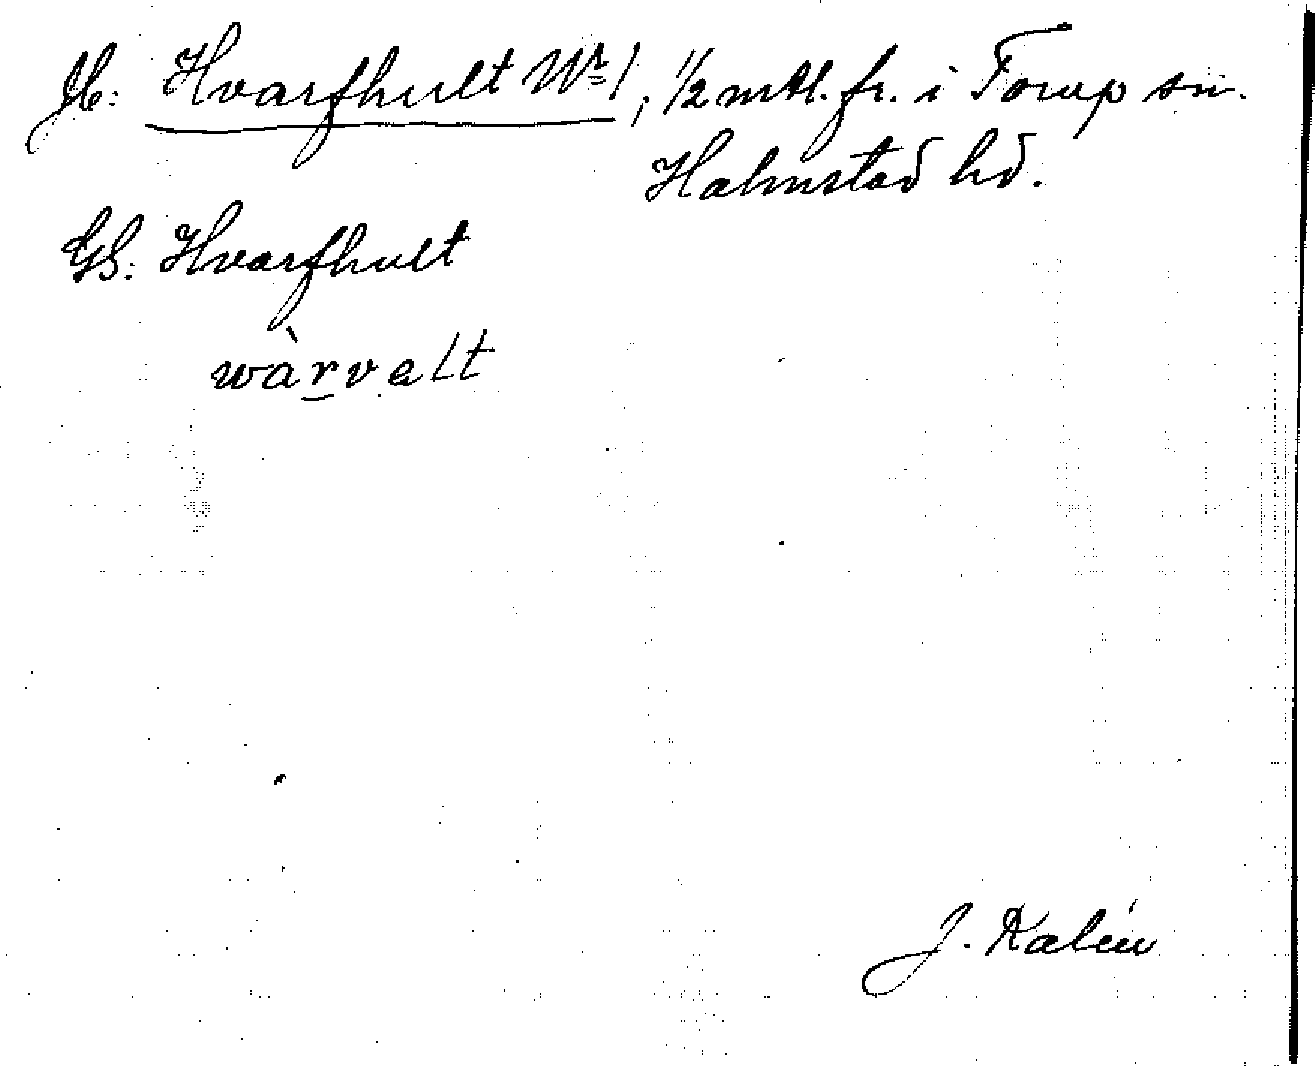 Jb: Hvarfhult Nr 1, 1/2 mtl. fr. i Torup sn.
Halmstad hd.
GS: Hvarfhult
wàrvalt
J. Kalén